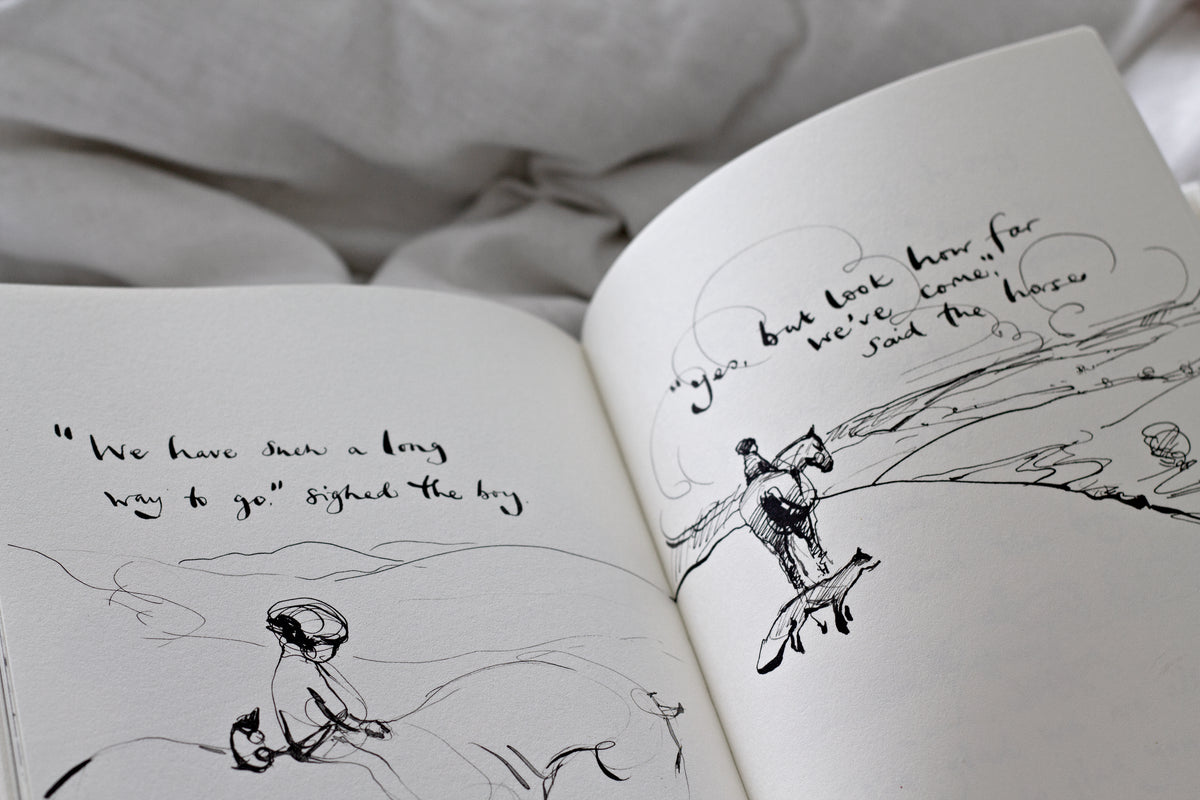 "We have such a long
way to go." sighed the boy.
"yes, but look how far
we've come,"
said the horse